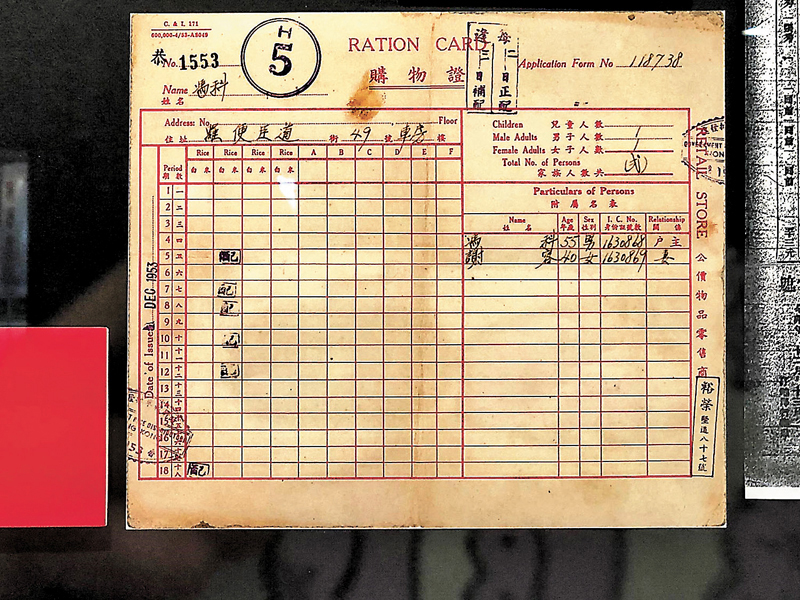 C. & I. 171
600,000-4/53-AS049
恭 No. 1553
H
5
RATION CARD
購物證
逢三日補配
每二日正配
Application Form No 118738
Name 馮科
姓名
Address: No. Floor
住址 羅便臣道 街 49 號 車房 樓
Children 兒童人數
Male Adults 男子人數 1
Female Adults 女子人數 1
Total No. of Persons
家族人數共 (弍)
Particulars of Persons
附屬名表
Name Age Sex I. C. No. Relationship
姓名 年歲 性別 身份証號數 關係
馮科 55 男 1630868 戶主
謝容 40 女 1630869 妻
Period Rice Rice Rice Rice A B C D E F
期數 白米 白米 白米 白米
1 一
2 二
3 三
4 四
5 五 配
6 六
7 七 配
8 八 配
9 九
10 十 配
11 十一
12 十二 配
13 十三
14 十四
15 十五
16 十六
17 十七
18 十八 配
Date of Issue: DEC 1953
RETAIL STORE 公價物品零售商
裕榮 堅道八十七號